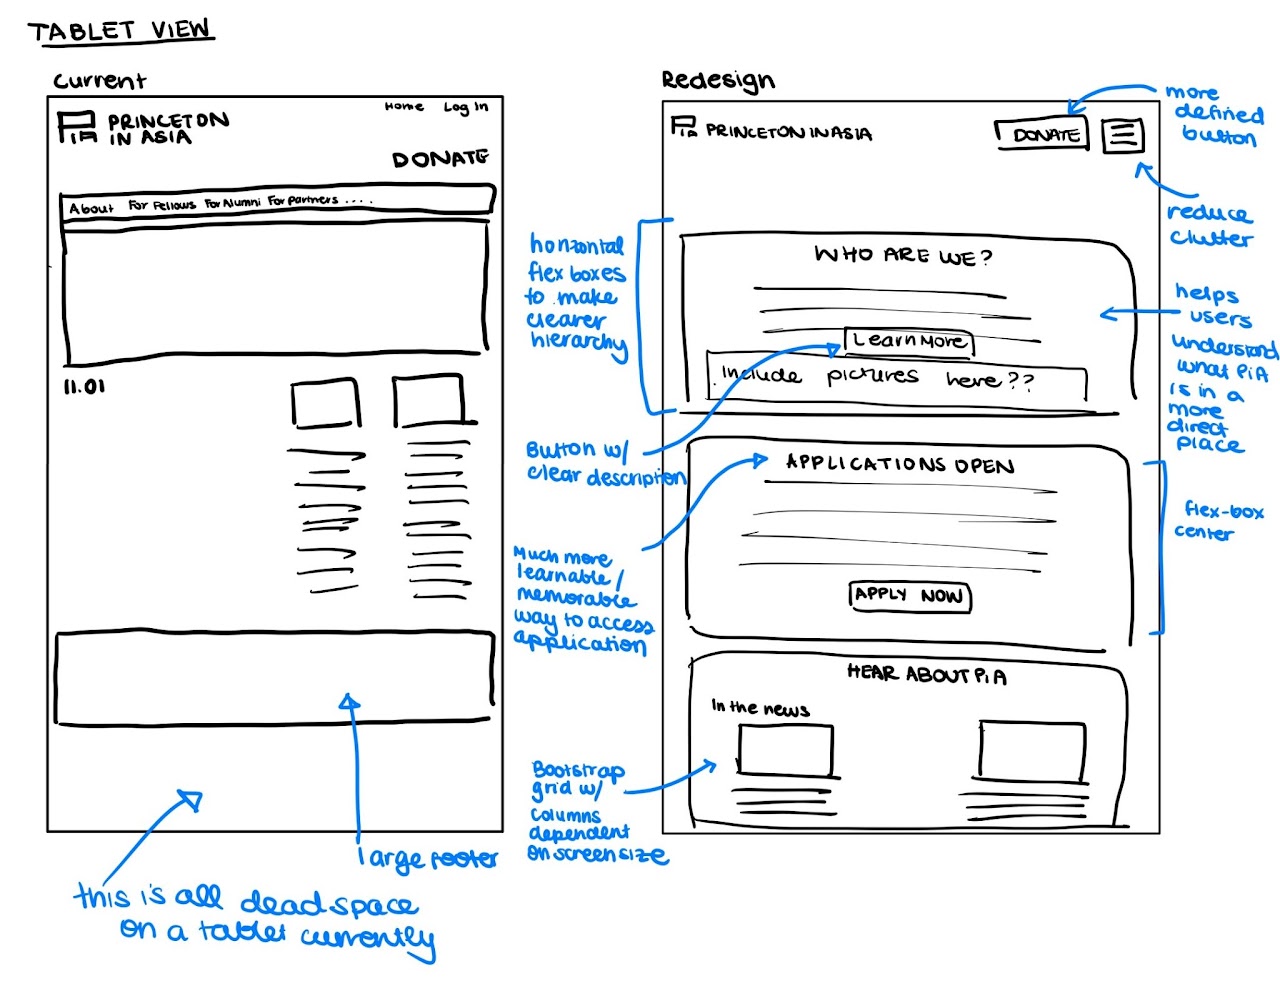 TABLET VIEW
Current
Home Log In
PRINCETON
IN ASIA
DONATE
About For Fellows For Alumni For Partners ....
11.01
large footer
this is all dead space
on a tablet currently
Redesign
PiA PRINCETON IN ASIA
DONATE
more
defined
button
reduce
clutter
horizontal
flex boxes
to make
clearer
hierarchy
WHO ARE WE?
Learn More
Include pictures here??
helps
users
understand
what PiA
is in a
more
direct
place
Button w/
clear description
APPLICATIONS OPEN
APPLY NOW
flex-box
center
Much more
learnable/
memorable
way to access
application
HEAR ABOUT PiA
In the news
Bootstrap
grid w/
columns
dependent
on screen size